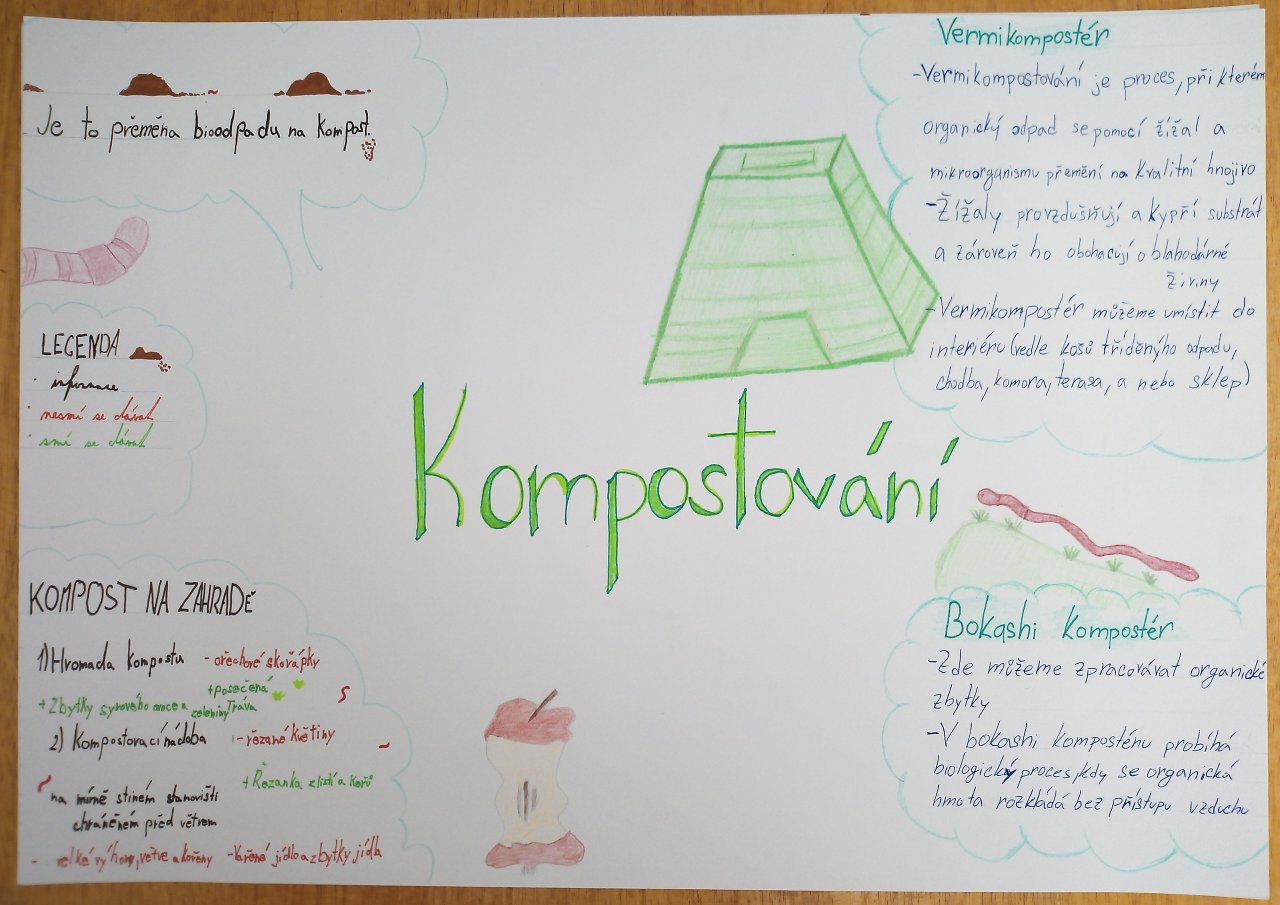 Je to přeměna bioodpadu na kompost.
LEGENDA
· informace
· nesmí se dávat
· smí se dávat
KOMPOST NA ZAHRADĚ
1) Hromada kompostu
- ořechové skořápky
+ Zbytky syrového ovoce a zeleniny
+ posečená
tráva
2) Kompostovací nádoba
- řezané květiny
+ Řezanka z listí a keřů
na mírně stinném stanovišti
chráněném před větrem
- velké výhony, větve a kořeny
- Vařené jídlo a zbytky jídla
Kompostování
Vermikompostér
- Vermikompostování je proces, při kterém
organický odpad se pomocí žížal a
mikroorganismu přemění na kvalitní hnojivo
- Žížaly provzdušňují a kypří substrát
a zároveň ho obohacují o blahodárné
živiny
- Vermikompostér můžeme umístit do
interiéru (vedle košů tříděnýho odpadu,
chodba, komora, terasa, a nebo sklep)
Bokashi kompostér
- Zde můžeme zpracovávat organické
zbytky
- V bokashi komposténu probíhá
biologický proces, kdy se organická
hmota rozkládá bez přístupu vzduchu